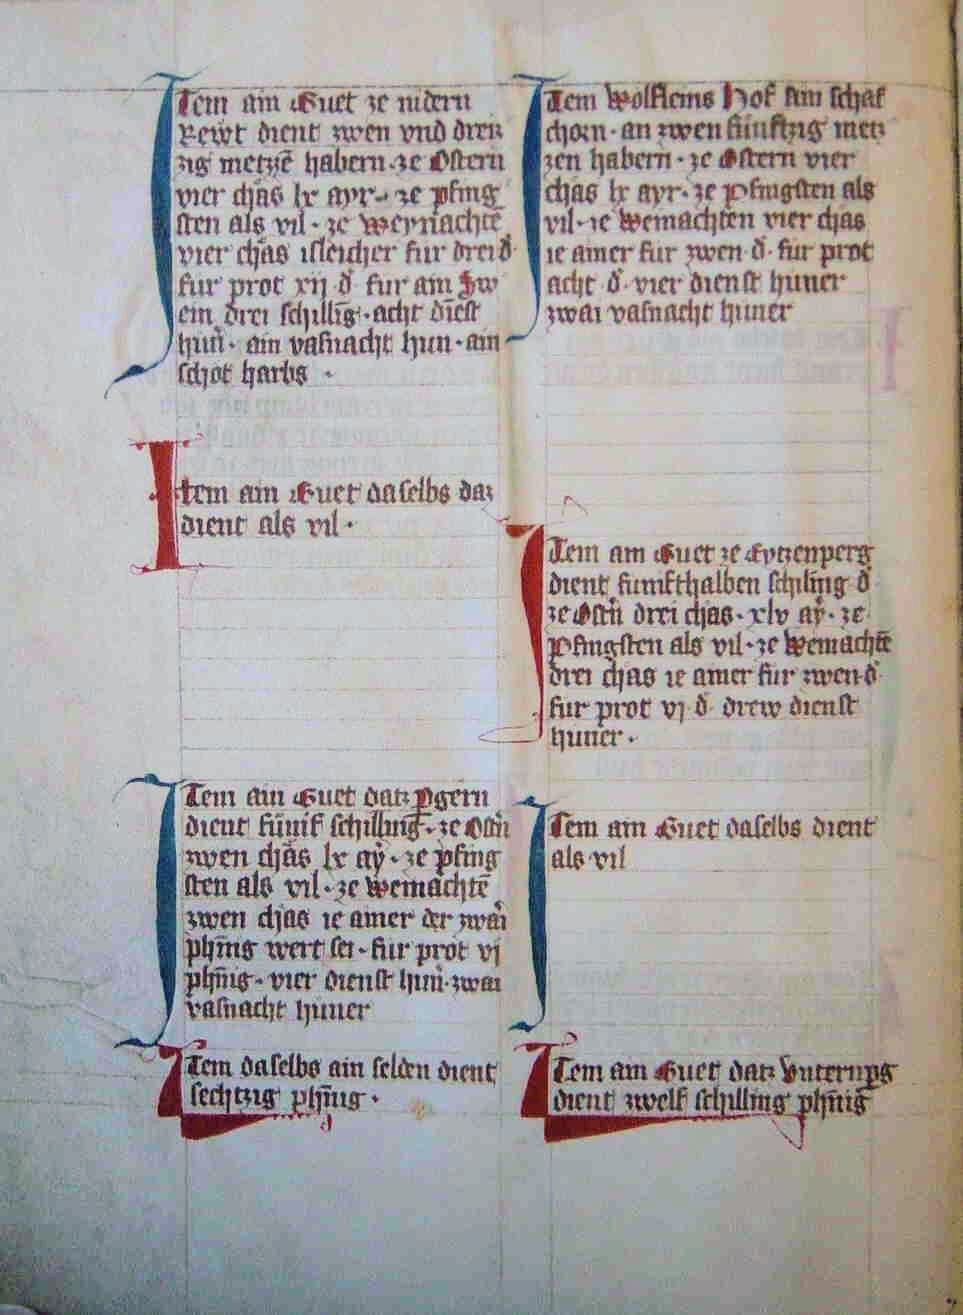 Item ain Guet ze nidern
Rewt dient zwen vnd dreiz
zig metzē habern · ze Ostern
vier chäs lx ayr · ze pfing
sten als vil · ze Weynachtē
vier chäs isleicher fur drei d̄
fur prot xij d̄ fur ain Sw
ein drei schilling · acht dīest
hun̄ · ain vasnacht hun · ain
schot harbs ·
Item ain Guet daselbs daz
dient als vil ·
Item ain Guet datz
dient fünif schilling · ze Ostn̄
zwen chäs lx aÿ · ze pfing
sten als vil · ze Weinachtē
zwen chäs ie ainer der zwai
phn̄ig wert sei · fur prot vj
phn̄ig · vier dienst hun̄ · zwai
vasnacht huner
Item daselbs ain selden dient
sechtzig phn̄ig ·
Item Wolfleins Hof ain schaf
chorn · an zwen fünftzig metz
zen habern · ze Ostern vier
chäs lx ayr · ze Pfingsten als
vil · ze Weinachten vier chäs
ie ainer fur zwen · d̄ · fur prot
acht · d̄ · vier dienst huner
zwai vasnacht huner
Item ain Guet ze Eytzenperg
dient funfthalben schiling d̄
ze Ostn̄ drei chäs · xlv aÿ · ze
Pfingsten als vil · ze Weinachtē
drei chäs ie ainer fur zwen · d̄
fur prot vj · d̄ · drew dienst
huner ·
Item ain Guet daselbs dient
als vil
Item ain Guet datz
dient zwelf schilling phn̄ig